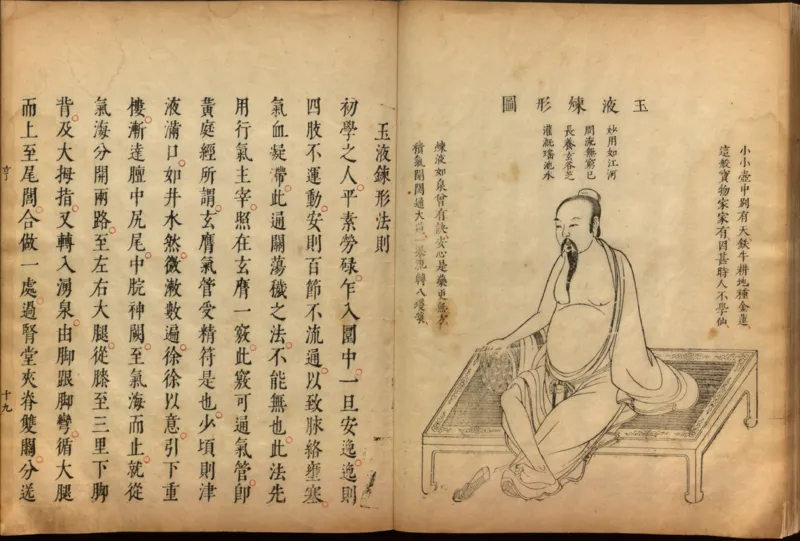 玉液煉形圖
小小壺中別有天鉄牛耕地種金蓮
這般寶物家家有因甚時人不學仙
妙用如江河
周流無窮已
長養玄谷芝
灌溉瑤池水
煉液如泉曾有訣安心是藥更無方
積氣開關通大
玉液鍊形法則
初學之人平素勞碌乍入圜中一旦安逸逸則
四肢不運動安則百節不流通以致脉絡壅塞
氣血凝滯此通關蕩穢之法不能無也此法先
用行氣主宰照在玄膺一竅此竅可通氣管卽
黃庭經所謂玄膺氣管受精符是也少頃則津
液滿口如井水然微漱數遍徐徐以意引下重
樓漸達膻中尻尾中脘神闕至氣海而止就從
氣海分開兩路至左右大腿從膝至三里下脚
背及大拇指又轉入湧泉由脚跟脚彎循大腿
而上至尾閭合做一處過腎堂夾脊雙關分送
十九